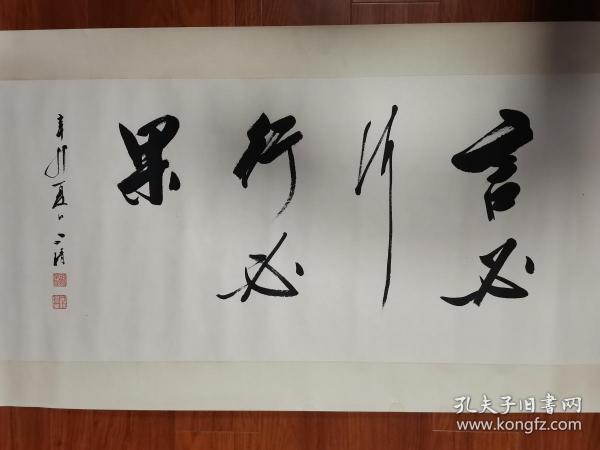 言必
信
行必
果
辛卯夏月
孔夫子旧书网
www.kongfz.com